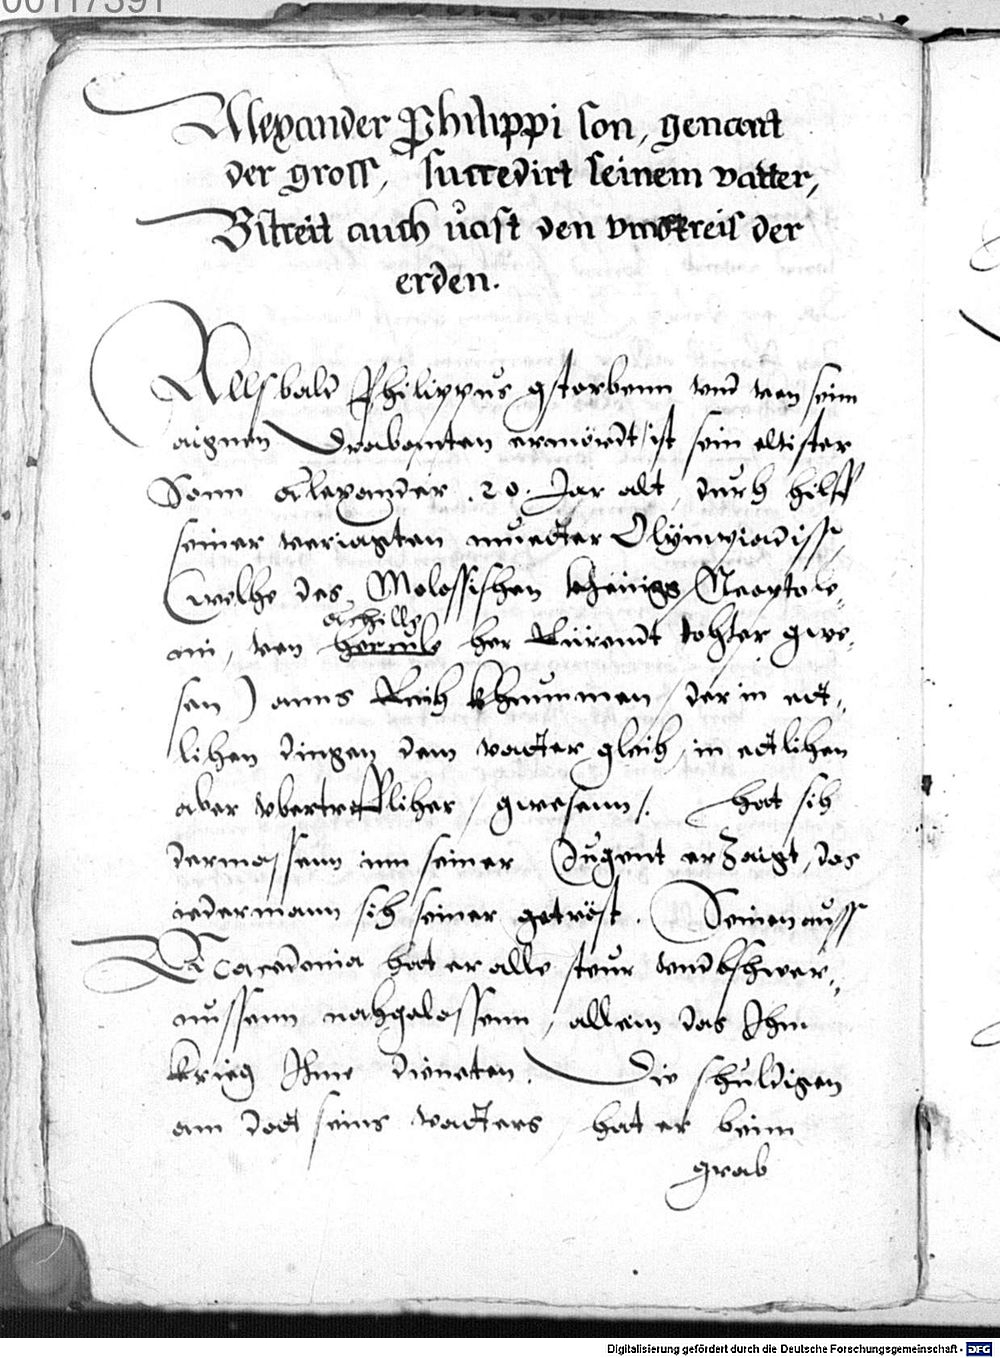 00117391
Alexander Philippi son, genant
der gross, succedirt seinem vatter,
Bstreit auch vast den vmbkreis der
erden.
Allsbald Philippus gstorbenn vnd von seim
aignen Drabannten ermördt, ist sein eltister
Sonn Allexannder .20. Jar alt, durch hilff
seiner veriagten muetter Olÿmpiadiss,
(welhe des Molossischen khönigs Neoptole,,
mi, von hercule her Rürendt tohter gwe,,
Achille
sen) anns Reich khummen, der in ett,,
lichen dingen dem vatter gleich, in ettlichen
aber vbertrefflicher, gwesenn /. hat sich
dermassenn inn seiner Jugent erzaigt, das
iedermann sich seiner getröst. Seinen auss
Macedonia hat er alle steur vnnd bschwer,,
nussenn nachgelassenn, allein das Ihm
krieg Ihme dieneten. Die schuldigen
am dodt seins vatters, hat er beim
grab
Digitalisierung gefördert durch die Deutsche Forschungsgemeinschaft - DFG